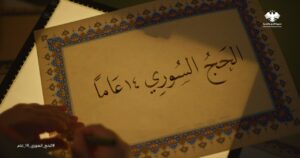 الحَجُّ السُّورِي ١٤ عَامًا
#الحج_السوري_14_عام